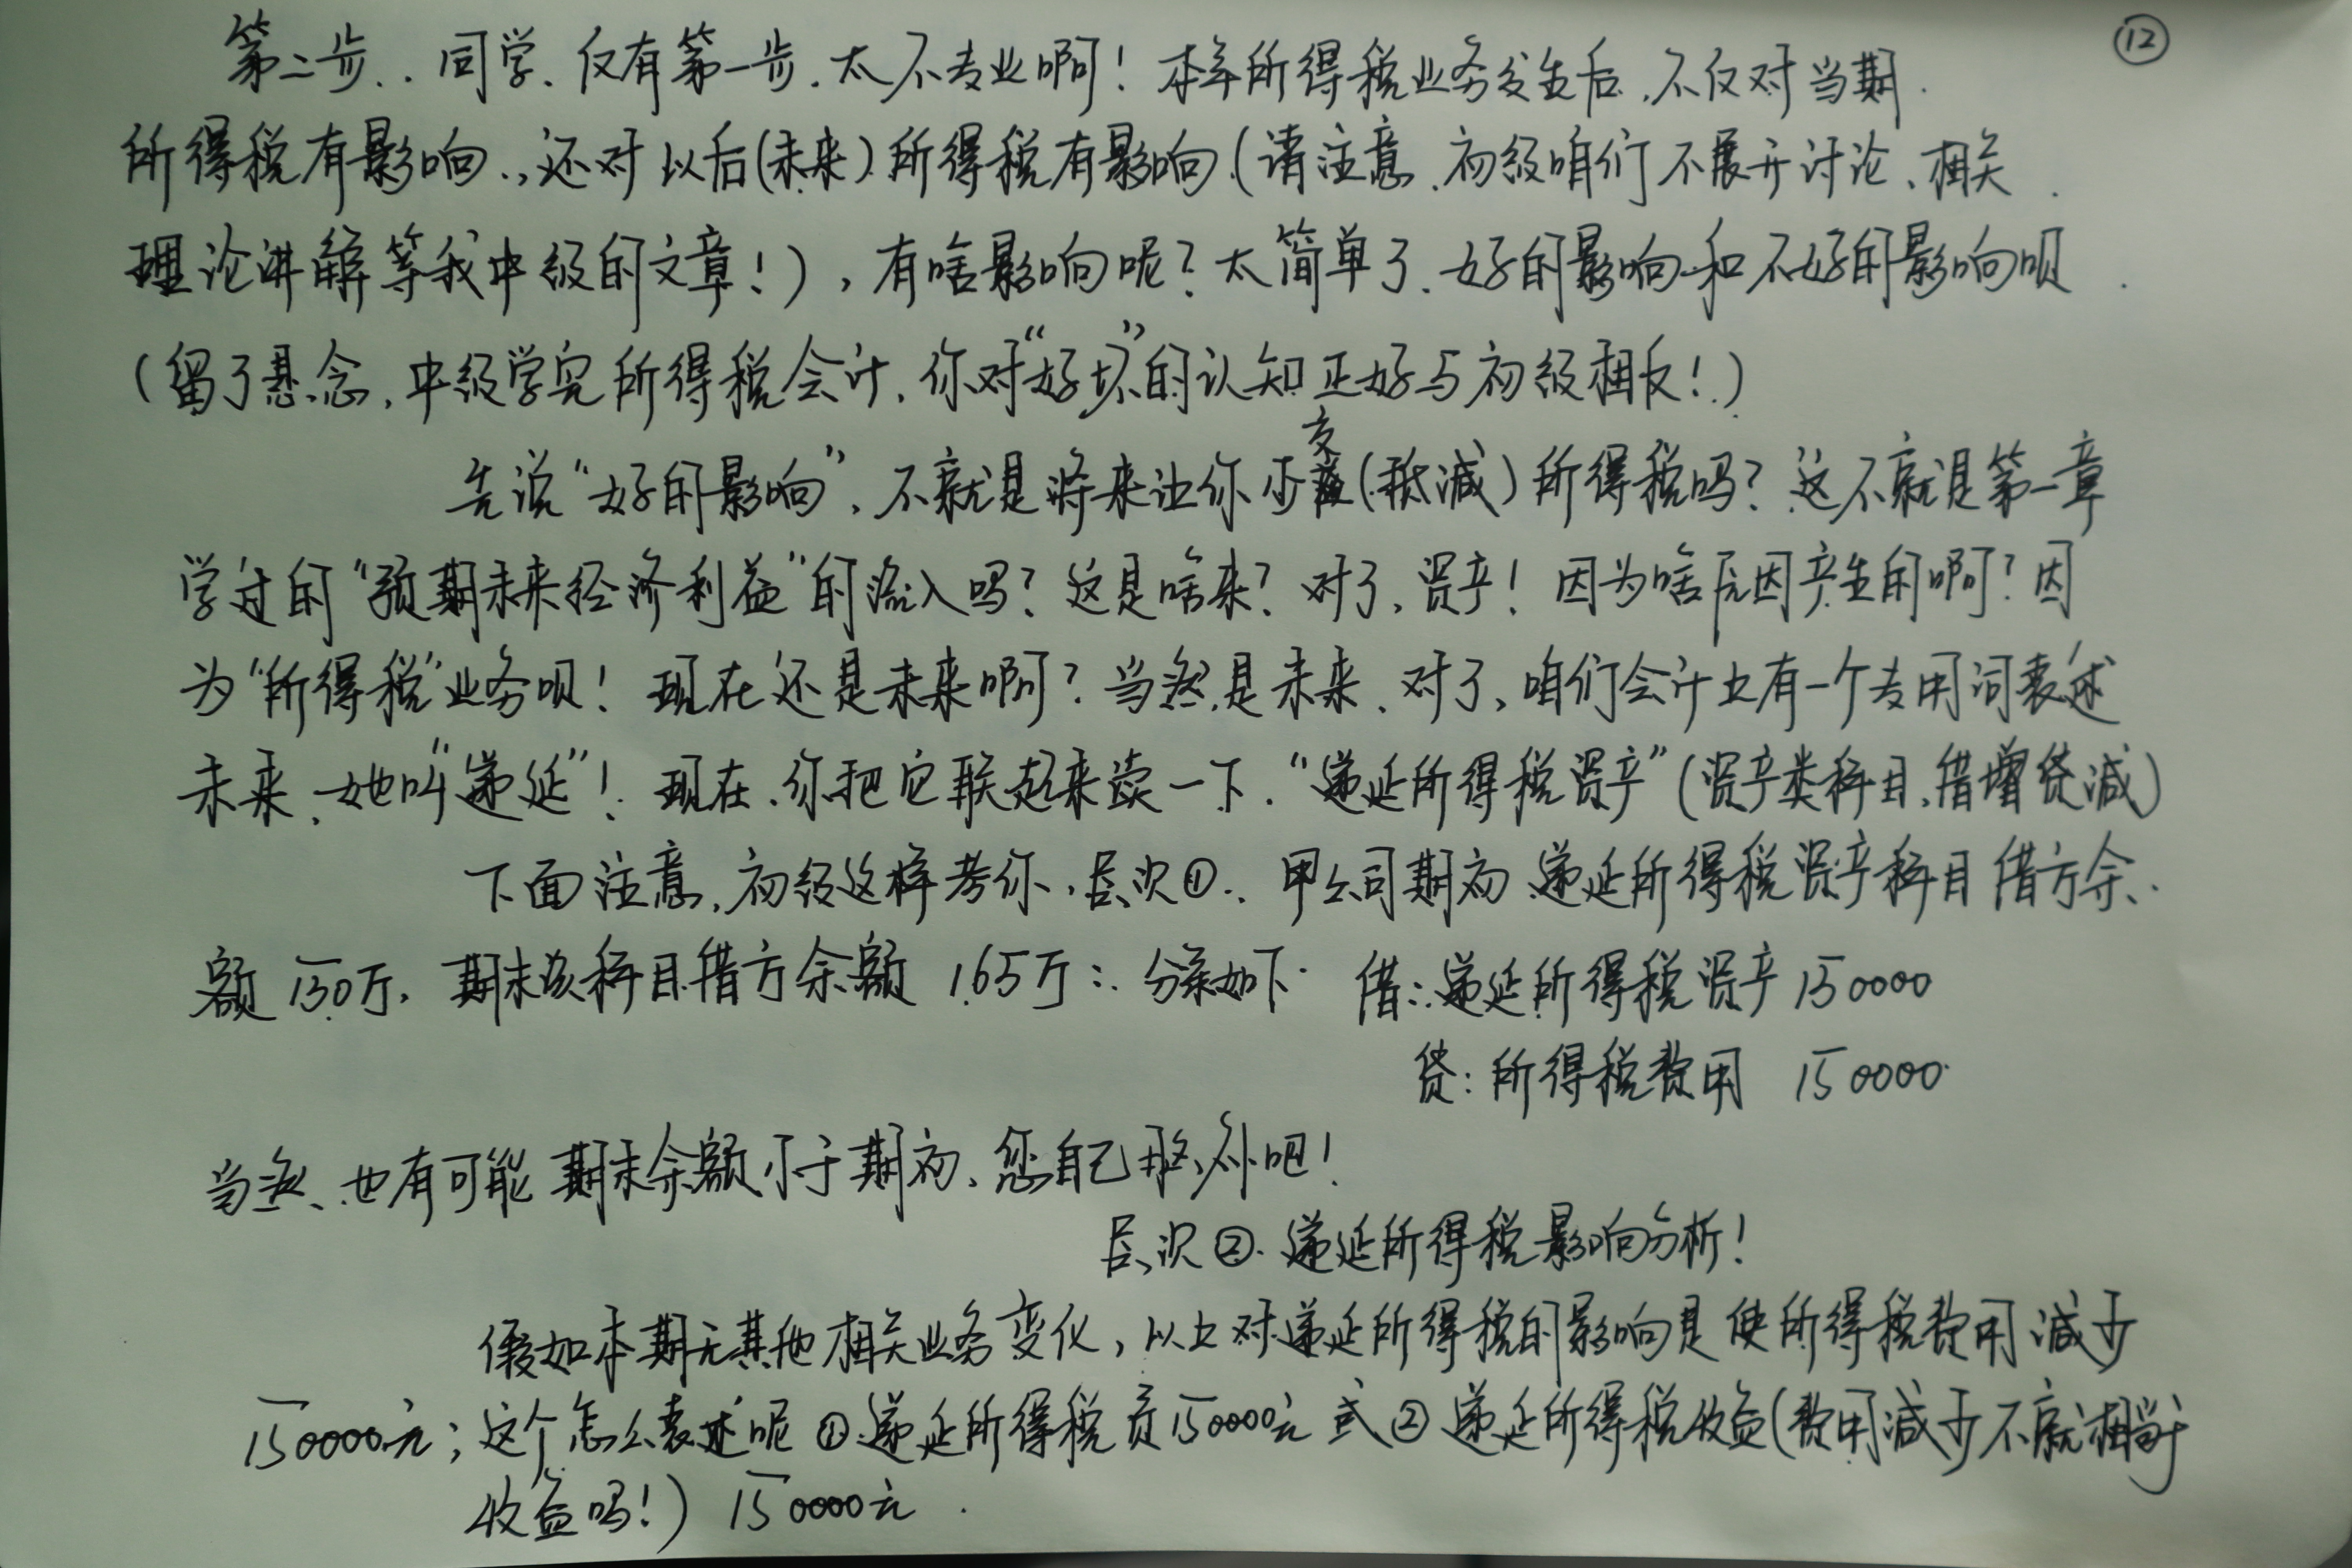 ⑫
第二步..同学、仅有第一步.太不专业啊！本年所得税业务发生后,不仅对当期
所得税有影响.,还对以后(未来)所得税有影响(请注意.初级咱们不展开讨论、相关
理论讲解等我中级的文章!),有啥影响呢?太简单了.好的影响和不好的影响呗
(留了悬念,中级学完所得税会计,你对“好坏”的认知正好与初级相反!)
先说“好的影响”,不就是将来让你少交(抵减)所得税吗?这不就是第一章
学过的“预期未来经济利益”的流入吗?这是啥来?对了,资产!因为啥原因产生的啊?因
为“所得税”业务呗!现在还是未来啊?当然是未来.对了,咱们会计上有一个专用词表述
未来,她叫“递延”!现在.你把它联起来读一下.“递延所得税资产”(资产类科目,借增贷减)
下面注意,初级这样考你,层次①.甲公司期初递延所得税资产科目借方余
额150万,期末该科目借方余额165万:分录如下 借:递延所得税资产150000
贷:所得税费用 150000
当然、也有可能期末余额小于期初,您自己.吧!
层次②.递延所得税影响分析!
假如本期无其他相关业务变化,以上对递延所得税的影响是使所得税费用减少
150000元;这个怎么表述呢①递延所得税负150000元或②递延所得税收益(费用减少不就相当于
收益吗!)150000元.